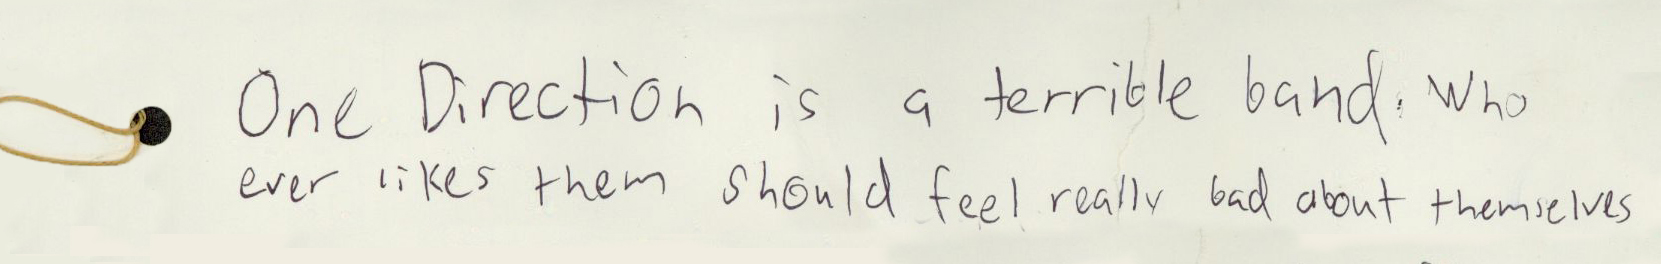 One Direction is a terrible band. Who
ever likes them should feel really bad about themselves